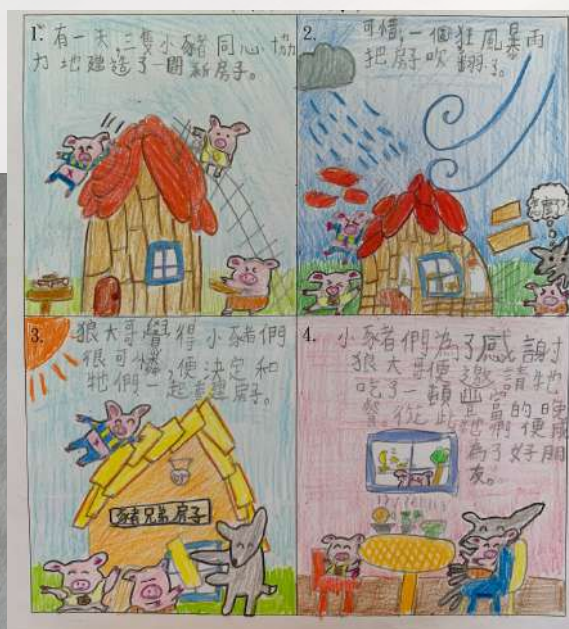 1. 有一天,三隻小豬同心協
力地建造了一間新房子。
2. 可惜,一個狂風暴雨
把房子吹翻了。
3. 狼大哥覺得小豬們
很可憐,便決定和
牠們一起重建房子。
豬兄弟房子
4. 小豬們為了感謝
狼大哥便邀請牠
吃了一頓豐富的晚
餐,從此牠們便成
為了好朋
友。